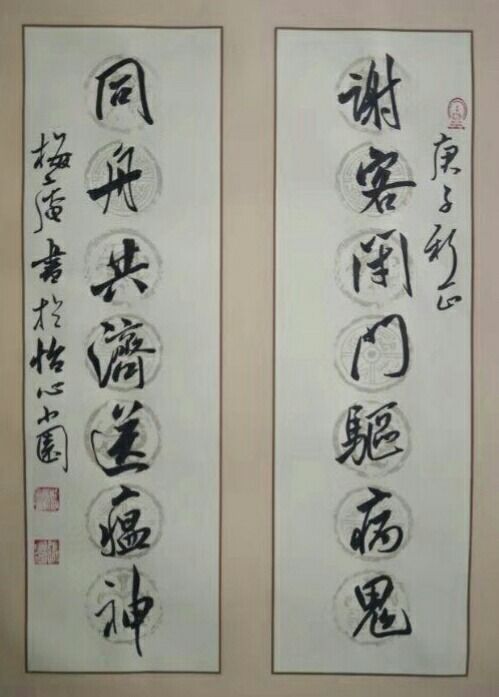 庚子新正
谢客闭门驱病鬼
同舟共濟送瘟神
梅庵書於怡心小園